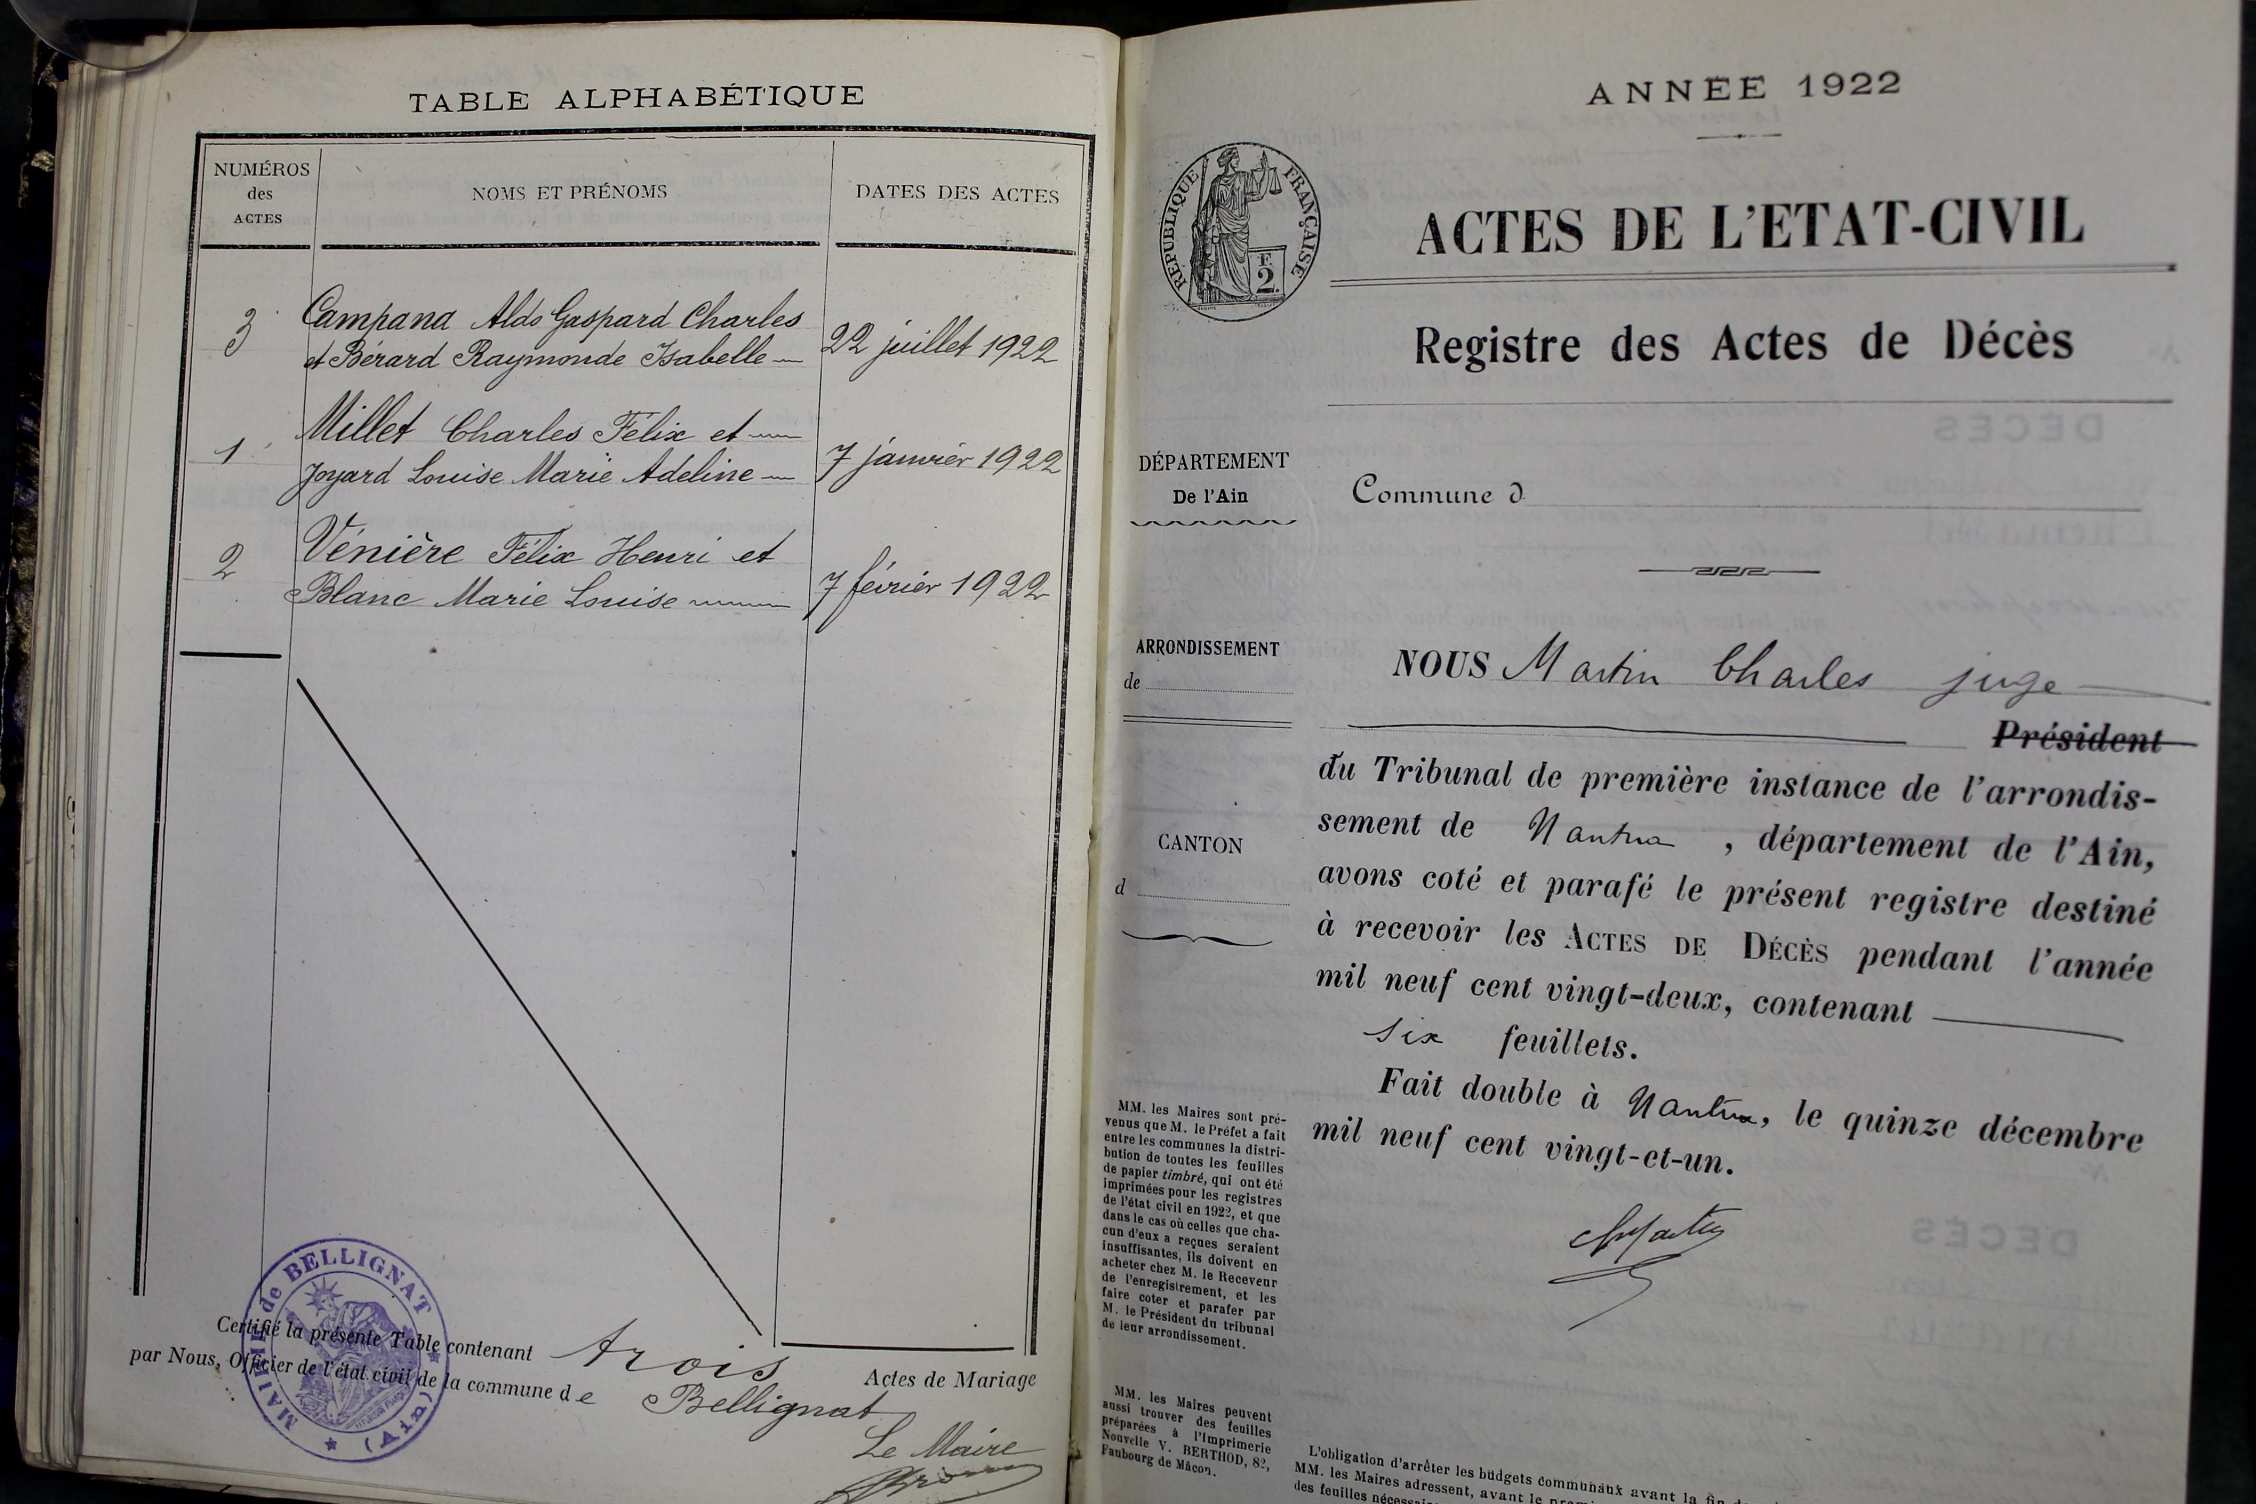 TABLE ALPHABÉTIQUE
NUMÉROS
des
ACTES
NOMS ET PRÉNOMS
DATES DES ACTES
3
Campana Aldo Gaspard Charles
et Bérard Raymonde Isabelle
22 juillet 1922
1
Millet Charles Félix et
Joyard Louise Marie Adeline
7 janvier 1922
2
Vénière Félix Henri et
Blanc Marie Louise
7 février 1922
MAIRIE de BELLIGNAT
(AIN)
Certifié la présente Table contenant trois Actes de Mariage
par Nous, Officier de l'état civil de la commune de Bellignat
Le Maire
ANNÉE 1922
RÉPUBLIQUE FRANÇAISE
F.
2.
ACTES DE L'ETAT-CIVIL
Registre des Actes de Décès
DÉPARTEMENT
De l'Ain
Commune d
ARRONDISSEMENT
de
CANTON
d
NOUS Martin Charles juge
Président
du Tribunal de première instance de l'arrondis-
sement de Nantua, département de l'Ain,
avons coté et parafé le présent registre destiné
à recevoir les ACTES DE DÉCÈS pendant l'année
mil neuf cent vingt-deux, contenant
six feuillets.
Fait double à Nantua, le quinze décembre
mil neuf cent vingt-et-un.
MM. les Maires sont pré-
venus que M. le Préfet a fait
entre les communes la distri-
bution de toutes les feuilles
de papier timbré, qui ont été
imprimées pour les registres
de l'état civil en 1922, et que
dans le cas où celles que cha-
cun d'eux a reçues seraient
insuffisantes, ils doivent en
acheter chez M. le Receveur
de l'enregistrement, et les
faire coter et parafer par
M. le Président du tribunal
de leur arrondissement.
MM. les Maires peuvent
aussi trouver des feuilles
préparées à l'Imprimerie
Nouvelle V. BERTHOD, 82,
Faubourg de Mâcon.
L'obligation d'arrêter les budgets communaux avant la fin
MM. les Maires adressent, avant le
des feuilles